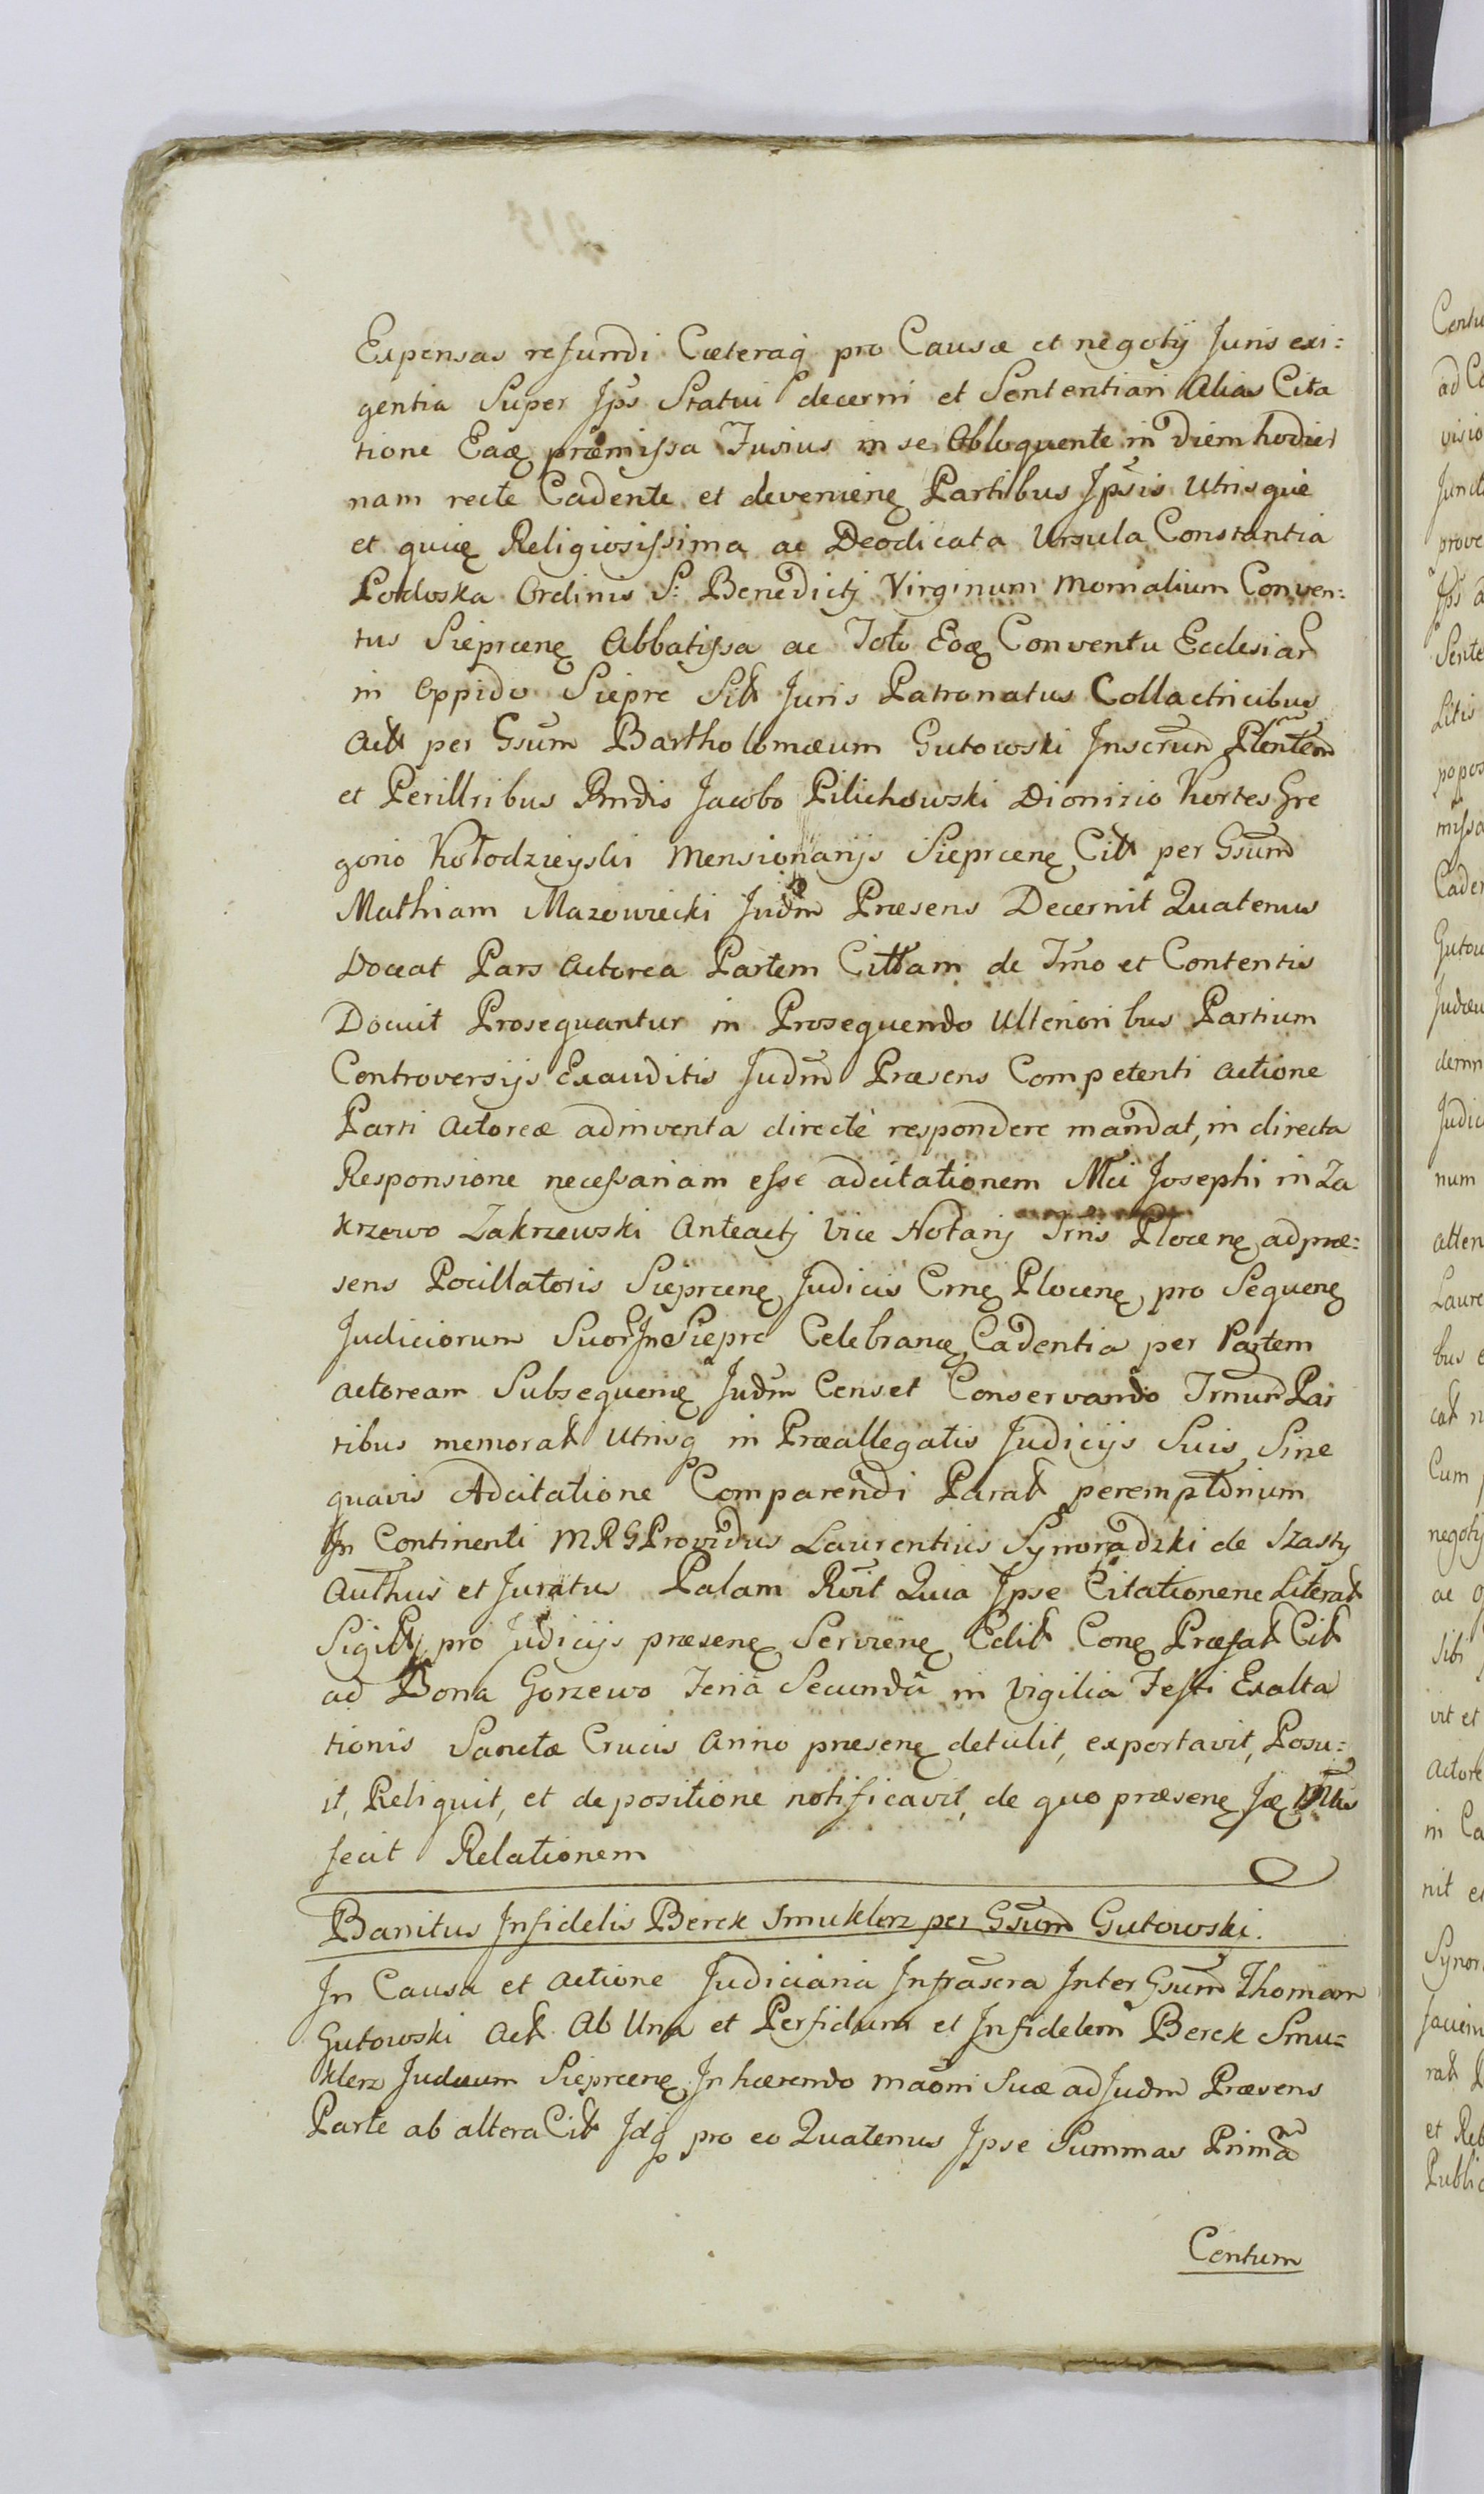 Expensas refundi Cæteraq pro Causæ et negotij Juris exi=
gentia Super Jps Statui decerni et Sententiari Alias Cita
tione Eaę præmissa Fusius in se Obloquente in diem hodier
nam recte Cadente et devenienę Partibus Jpsis Utrisquè
et quię Religiosissima ac Deodicata Ursula Constantia
Podoska Ordinis S: Benedictj Virginum Momalium Conven=
tus Sieprcenę Abbatissa ac Toto Eoę Conventu Ecclesiar
in Oppido Sieprc Sitt Juris Patronatus Collactricibus
Actt per Gsum Bartholomæum Gutowski Inscrum Plentem
et Perillribus Rndis Jacobo Pilichowski Dionizio Kortes Gre
gorio Kołodzieyski Mensionarijs Sieprcenę Citt per Gsum
Mathiam Mazowiecki Judm Præsens Decernit Quatenus
Doceat Pars Actorea Partem Cittam de Tmo et Contentis
Docuit Prosequantur in Prosequendo Ulterioribus Partium
Controversijs Exauditis Judm Præsens Competenti actione
Parti Actoreæ adinventa directè respondere mandat, in directa
Responsione necessariam esse adcitationem Mci Josephi in Za
krzewo Zakrzewski Anteactj Vice Notarij Trris Plocenę ad præ=
sens Pocillatoris Sieprcenę Judicis Crnę Plocenę pro Sequenę
Judiciorum Suor In Sieprc Celebranę Cadentia per Partem
actoream Subsequenę Judm Censet Conservando Trmum Par
tibus memoratt Utrisq in Præallegatis Judicijs Suis Sine
quavis Adcitatione Comparendi Paratt peremptorium
In Continenti MRG Providus Laurentius Synoradzki de Szasty
Authus et Juratus Palam Rvit Quia Jpse Citationene Literatt
Sigittj pro Judicijs præsenę Servienę Editt Conę Præfatt Citt
ad Bona Gorzewo Feria Secundâ in Vigilia Festi Exalta
tionis Sanctæ Crucis Anno præsenę detulit, exportavit, Posu=
it, Reliquit, et depositione notificavit, de quo præsenę Jæ
fecit Relationem
Banitus Infidelis Berek Smuklerz per Gsum Gutowski.
In Causa et actione Judiciaria Infrascra Inter Gsum Thomam
Gutowski Actt Ab Una et Perfidum et Infidelem Berek Smu=
klerz Judæum Sieprcenę Inhærendo maoni Suæ ad Judm Præsens
Parte ab altera Citt Jdq pro eo Quatenus Jpse Summas Prima
Centum